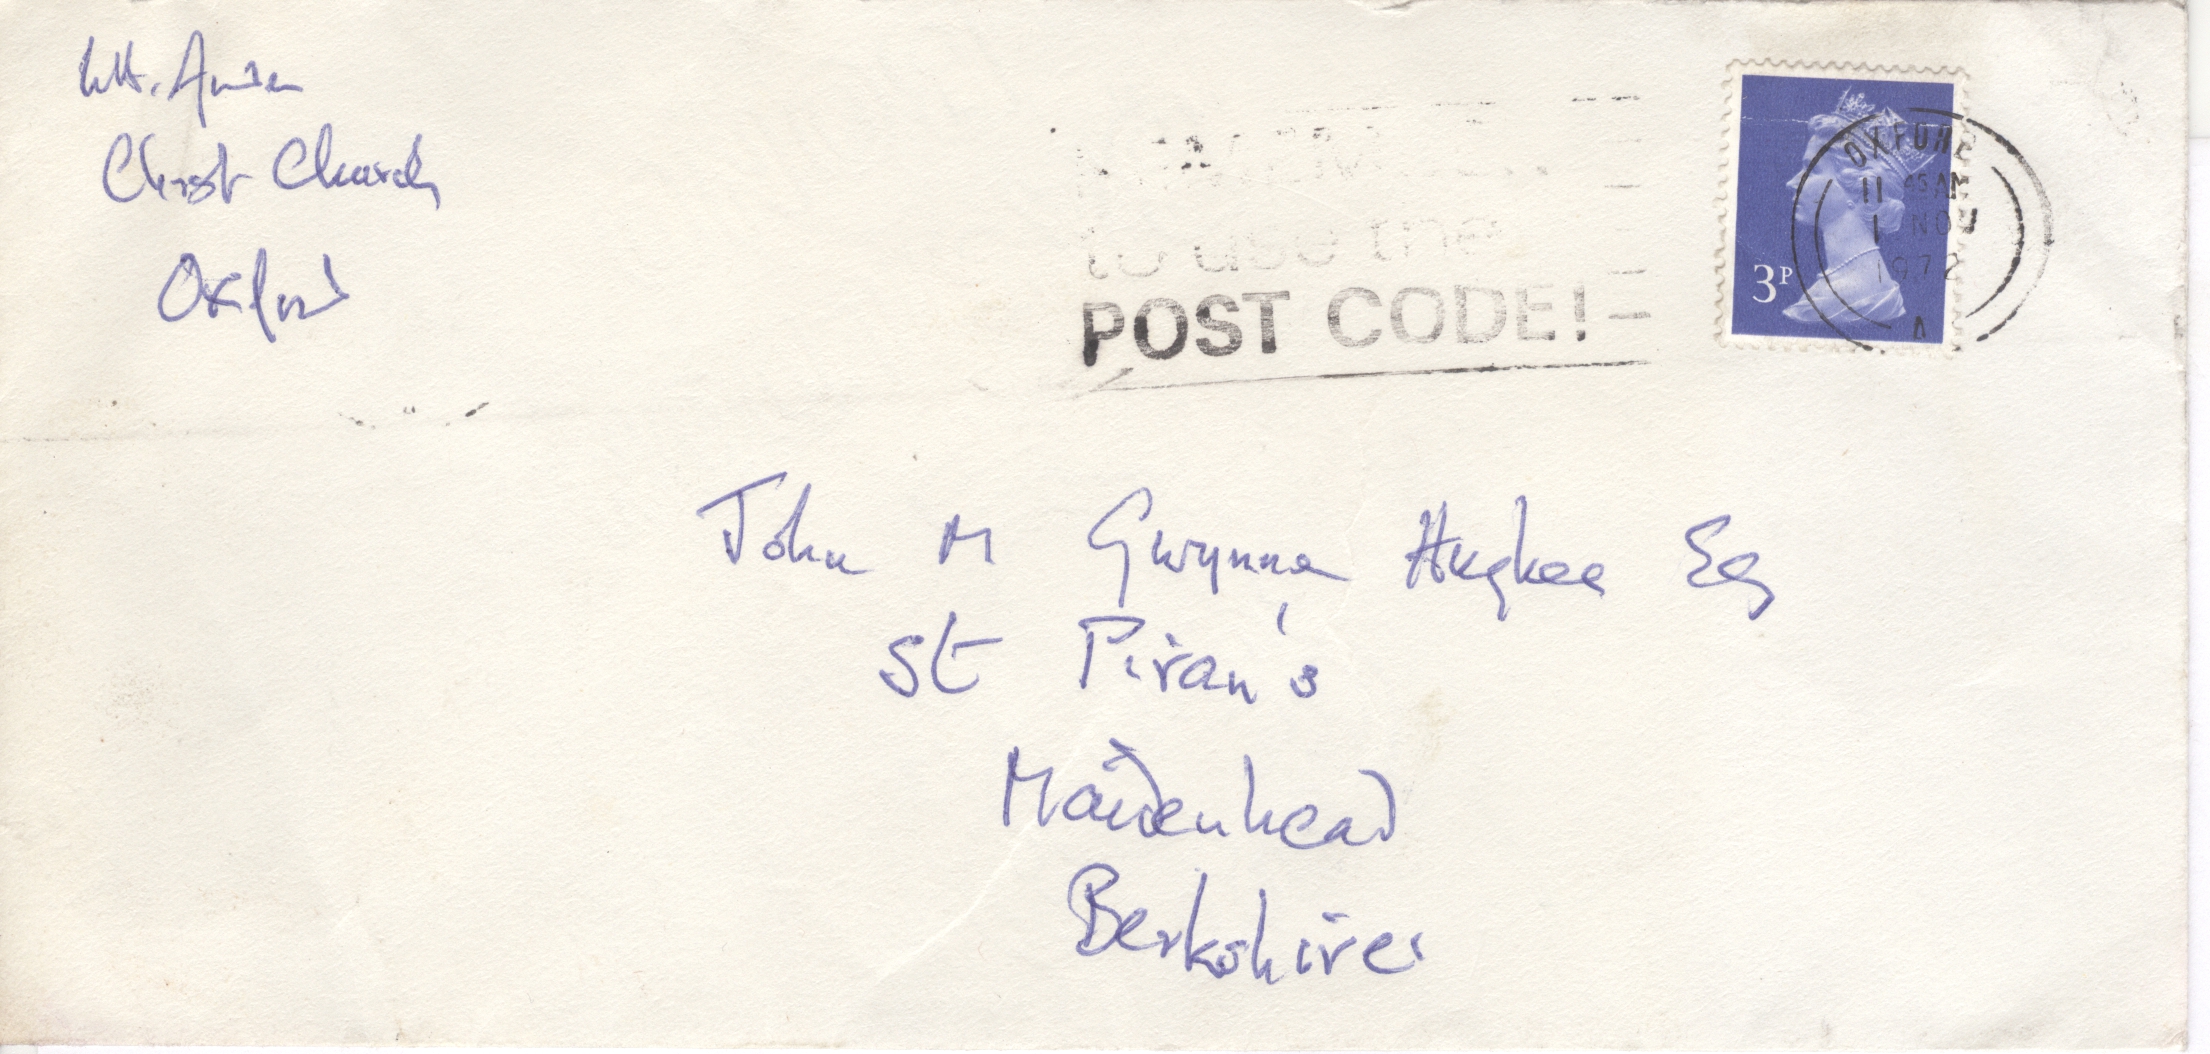 WH. Auden
Christ Church
Oxford
to use the
POST CODE!
3P
OXFORD
11 45 AM
1 NOV
1972
A
John M Gwynne Hughes Esq
St Piran's
Maidenhead
Berkshire